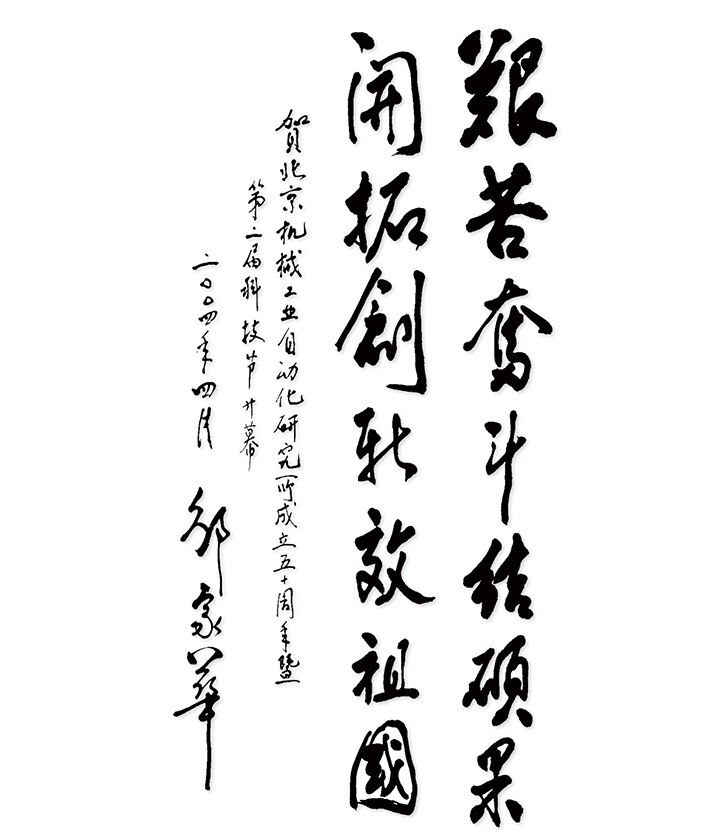 艱苦奮斗结碩果
開拓創新效祖國
賀北京机械工业自动化研究所成立五十周年暨
第二届科技节开幕
二〇〇四年四月
邹家华